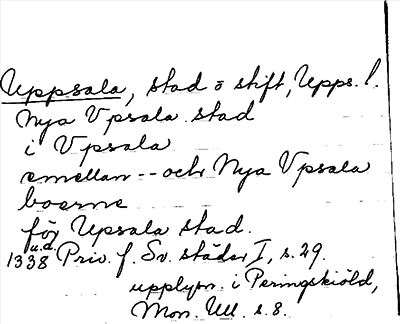 Uppsala, stad o stift, Upps. l.
Nya Vpsala stad
i Vpsala
emellan -- och Nya Vpsala
boerne
för Upsala stad.
u.d.
1338 Priv. f. Sv. städer I, s. 29.
upplysn. i Peringskiöld,
Mon. Ull. s. 8.